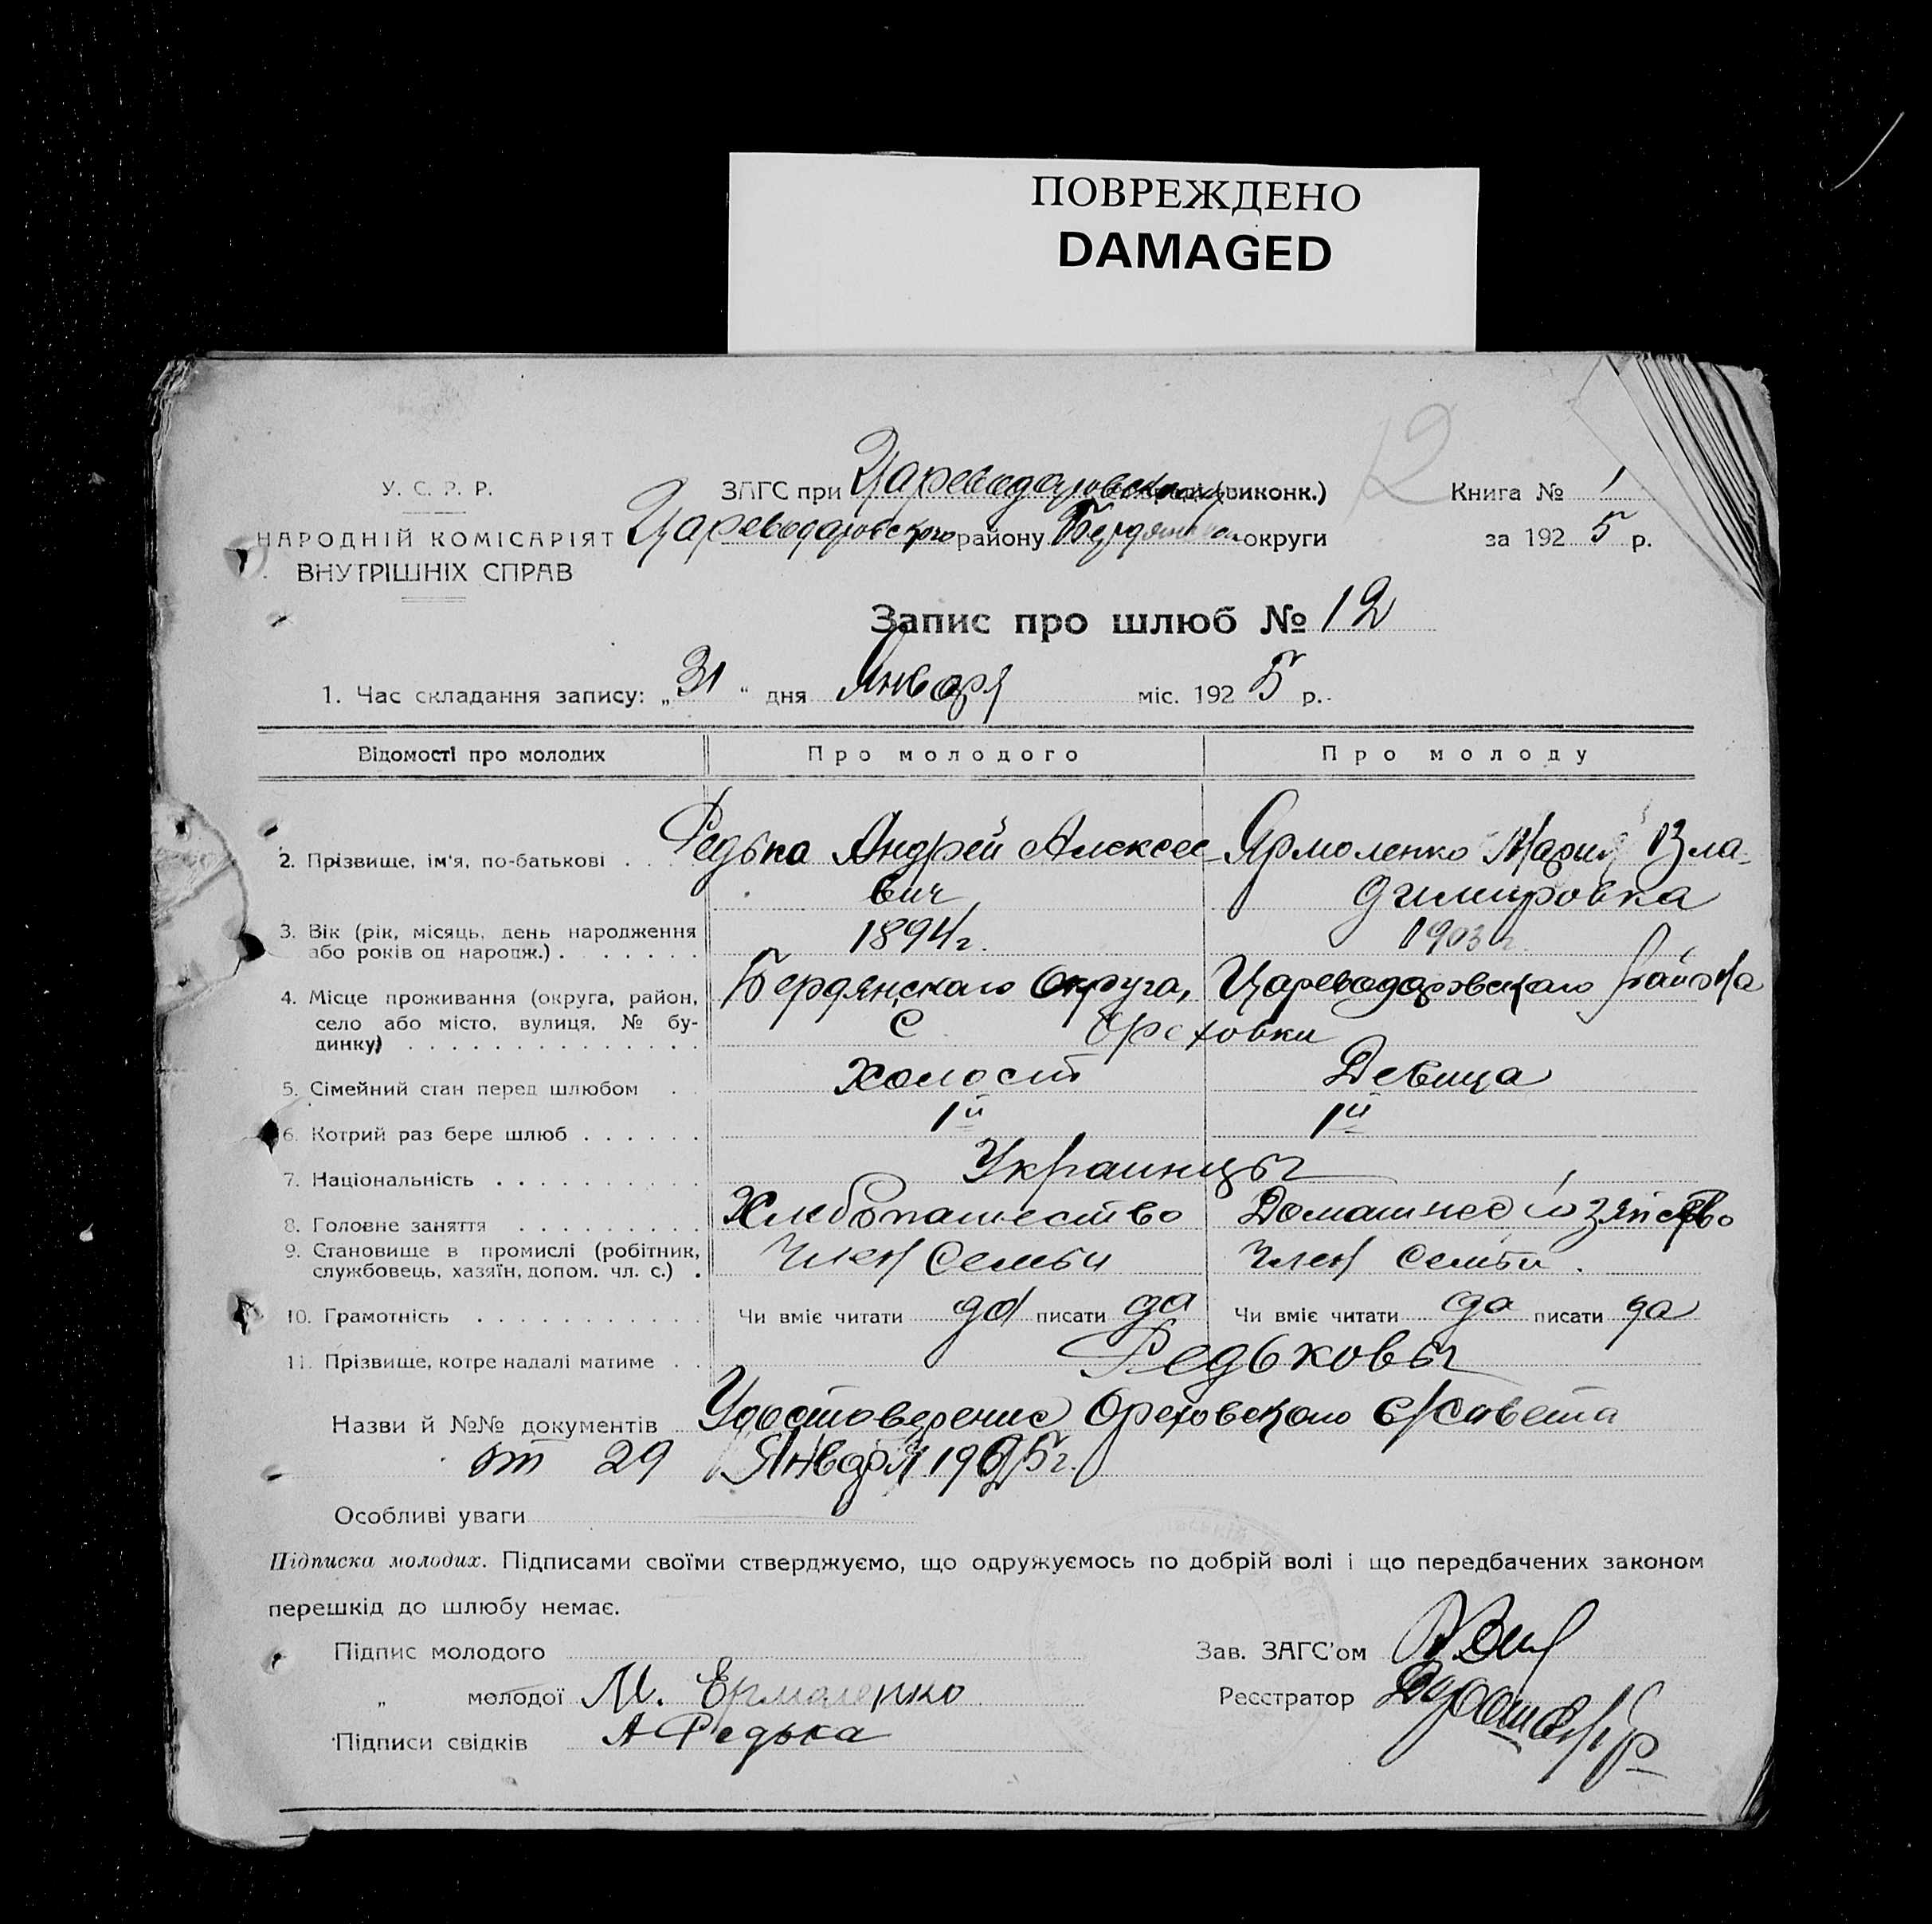 ПОВРЕЖДЕНО
DAMAGED
12
У. С. Р. Р.
НАРОДНІЙ КОМІСАРІЯТ
ВНУТРІШНІХ СПРАВ
ЗАГС при Цареводаровском (виконк.)
Цареводаровского району Бердянского округи
Книга № 1
за 1925 р.
Запис про шлюб № 12
1. Час складання запису: „31“ дня Января міс. 1925 р.
Відомості про молодих Про молодого Про молоду
2. Прізвище, ім'я, по-батькові . . . Редька Андрей Алексее- Ярмоленко Мария Вла-
вич димировна
3. Вік (рік, місяць, день народження 1894 г. 1903 г.
або років од народж.) . . . . . . .
4. Місце проживання (округа, район, Бердянского Округа, Цареводаровского района
село або місто, вулиця, № бу- С Ореховки
динку) . . . . . . . . . . . . . .
5. Сімейний стан перед шлюбом . . Холост Девица
6. Котрий раз бере шлюб . . . . . . 1й 1й
7. Національність . . . . . . . . . . Украинцы
8. Головне заняття . . . . . . . . . Хлебопашество Домашнее хозяйство
9. Становище в промислі (робітник, Член Семьи Член семьи.
службовець, хазяїн, допом. чл. с.) .
10. Грамотність . . . . . . . . . . . Чи вміє читати да писати да Чи вміє читати да писати да
11. Прізвище, котре надалі матиме . . Редьковы
Назви й №№ документів Удостоверение Ореховского с/совета
от 29 Января 1925 г.
Особливі уваги
Підписка молодих. Підписами своїми стверджуємо, що одружуємось по добрій волі і що передбачених законом
перешкід до шлюбу немає.
Підпис молодого Зав. ЗАГС'ом
„ молодої М. Ермоленко Реєстратор
Підписи свідків А Редька